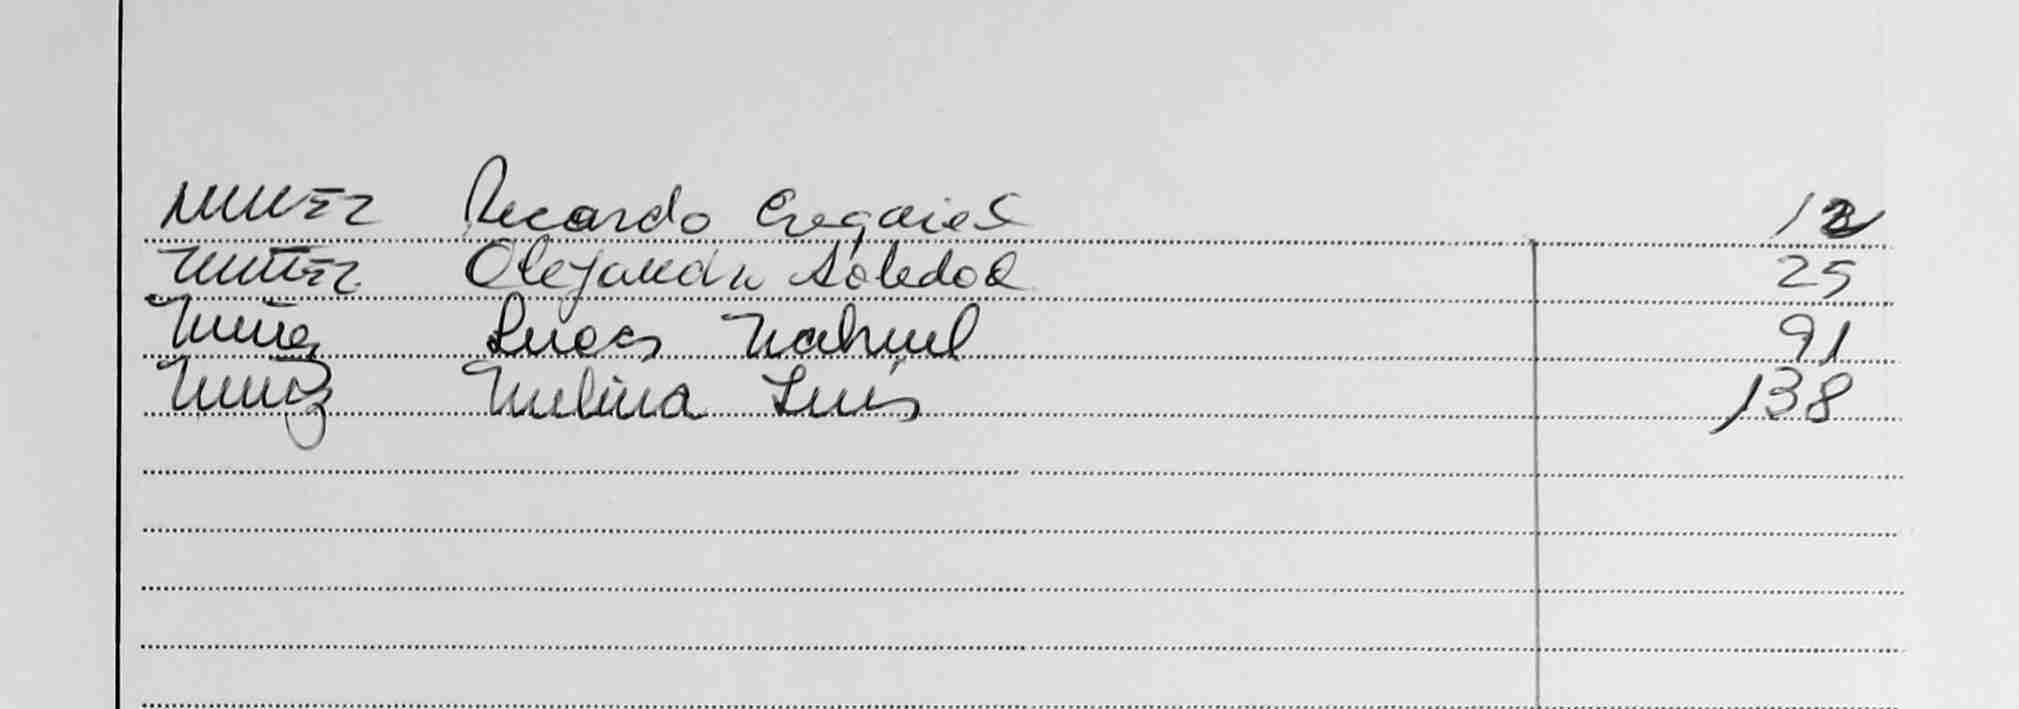 NUÑEZ Ricardo Ezequiel 12
NUÑEZ Alejandra Soledad 25
Nuñez Lucas Nahuel 91
Nuñez Melina Luis 138